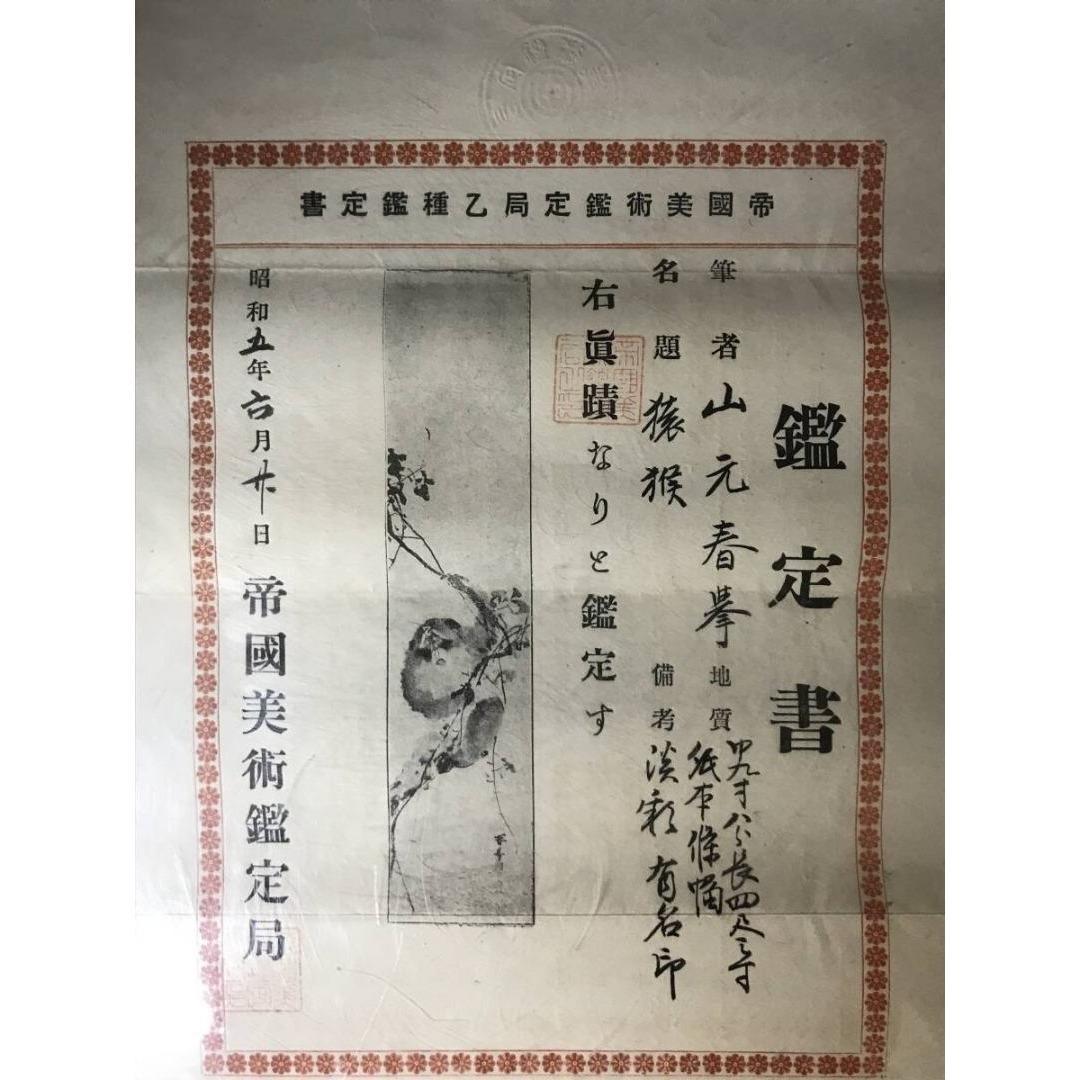 帝國美術鑑定局乙種鑑定書
鑑定書
筆者 山元春挙
地質 巾九寸八分長四尺三寸
紙本條幅
名題 猿猴
備考 淡彩有名印
右眞蹟なりと鑑定す
昭和五年六月廿日
帝國美術鑑定局